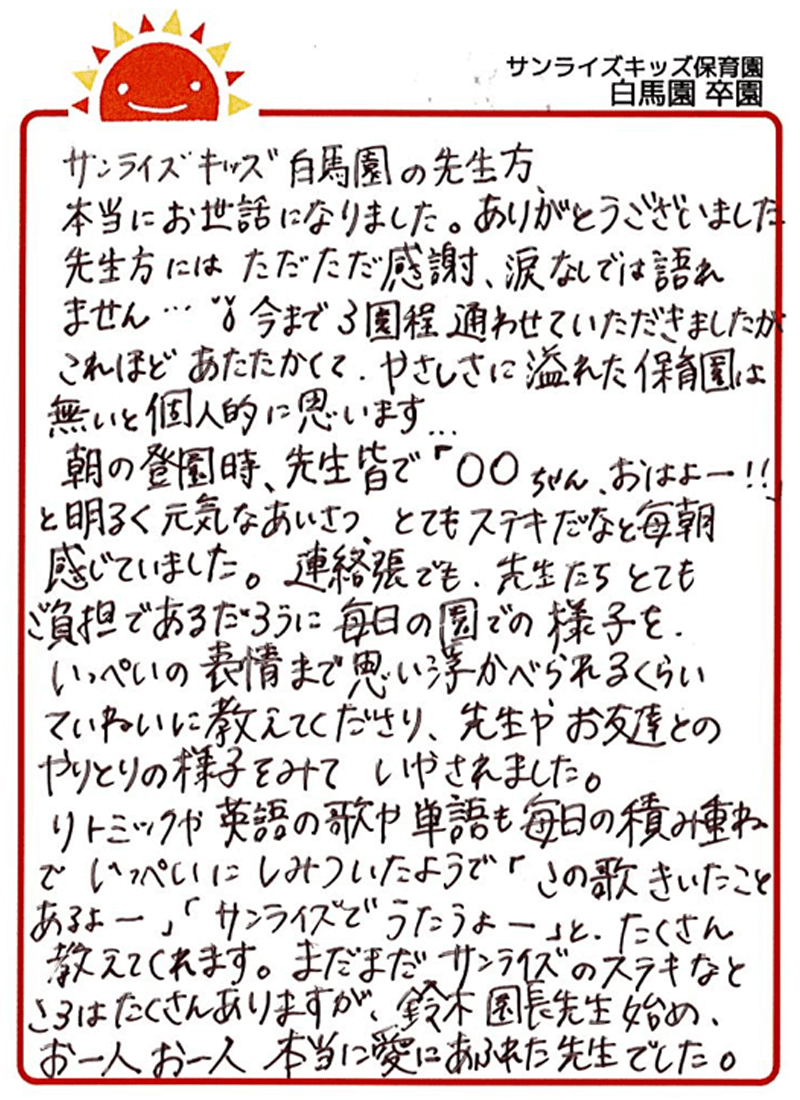 サンライズキッズ保育園
白馬園 卒園
サンライズキッズ白馬園の先生方、
本当にお世話になりました。ありがとうございました
先生方には ただただ感謝、涙なしでは語れ
ません… 今まで3園程通わせていただきましたが
これほど あたたかくて、やさしさに溢れた保育園は
無いと個人的に思います…
朝の登園時、先生皆で「〇〇ちゃん、おはよー!!」
と明るく元気なあいさつ、とてもステキだなと毎朝
感じていました。連絡張でも、先生たちとても
ご負担であるだろうに毎日の園での様子を、
いっぺいの表情まで思い浮かべられるくらい
ていねいに教えてくださり、先生や お友達との
やりとりの様子をみて いやされました。
リトミックや英語の歌や単語も毎日の積み重ね
で いっぺいにしみついたようで「この歌きいたこと
あるよー」「サンライズでうたうよー」と、たくさん
教えてくれます。まだまだ サンライズのステキなと
ころはたくさんありますが、鈴木園長先生始め、
お一人お一人 本当に愛にあふれた先生でした。